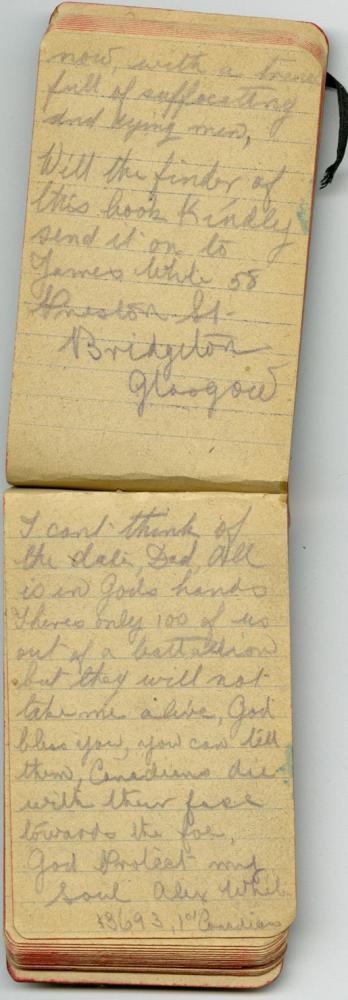 now, with a trench
full of suffocating
and dying men,
Will the finder of
this book Kindly
send it on to
James White 58
Preston St.
Bridgeton
Glasgow
I cant think of
the date, Dad, All
is in Gods hands
Theres only 100 of us
out of a battallion
but they will not
take me alive, God
bless you, you can tell
them, Canadians die
with their face
towards the foe,
God Protect my
Soul Alex White
$8693, 1st Canadians